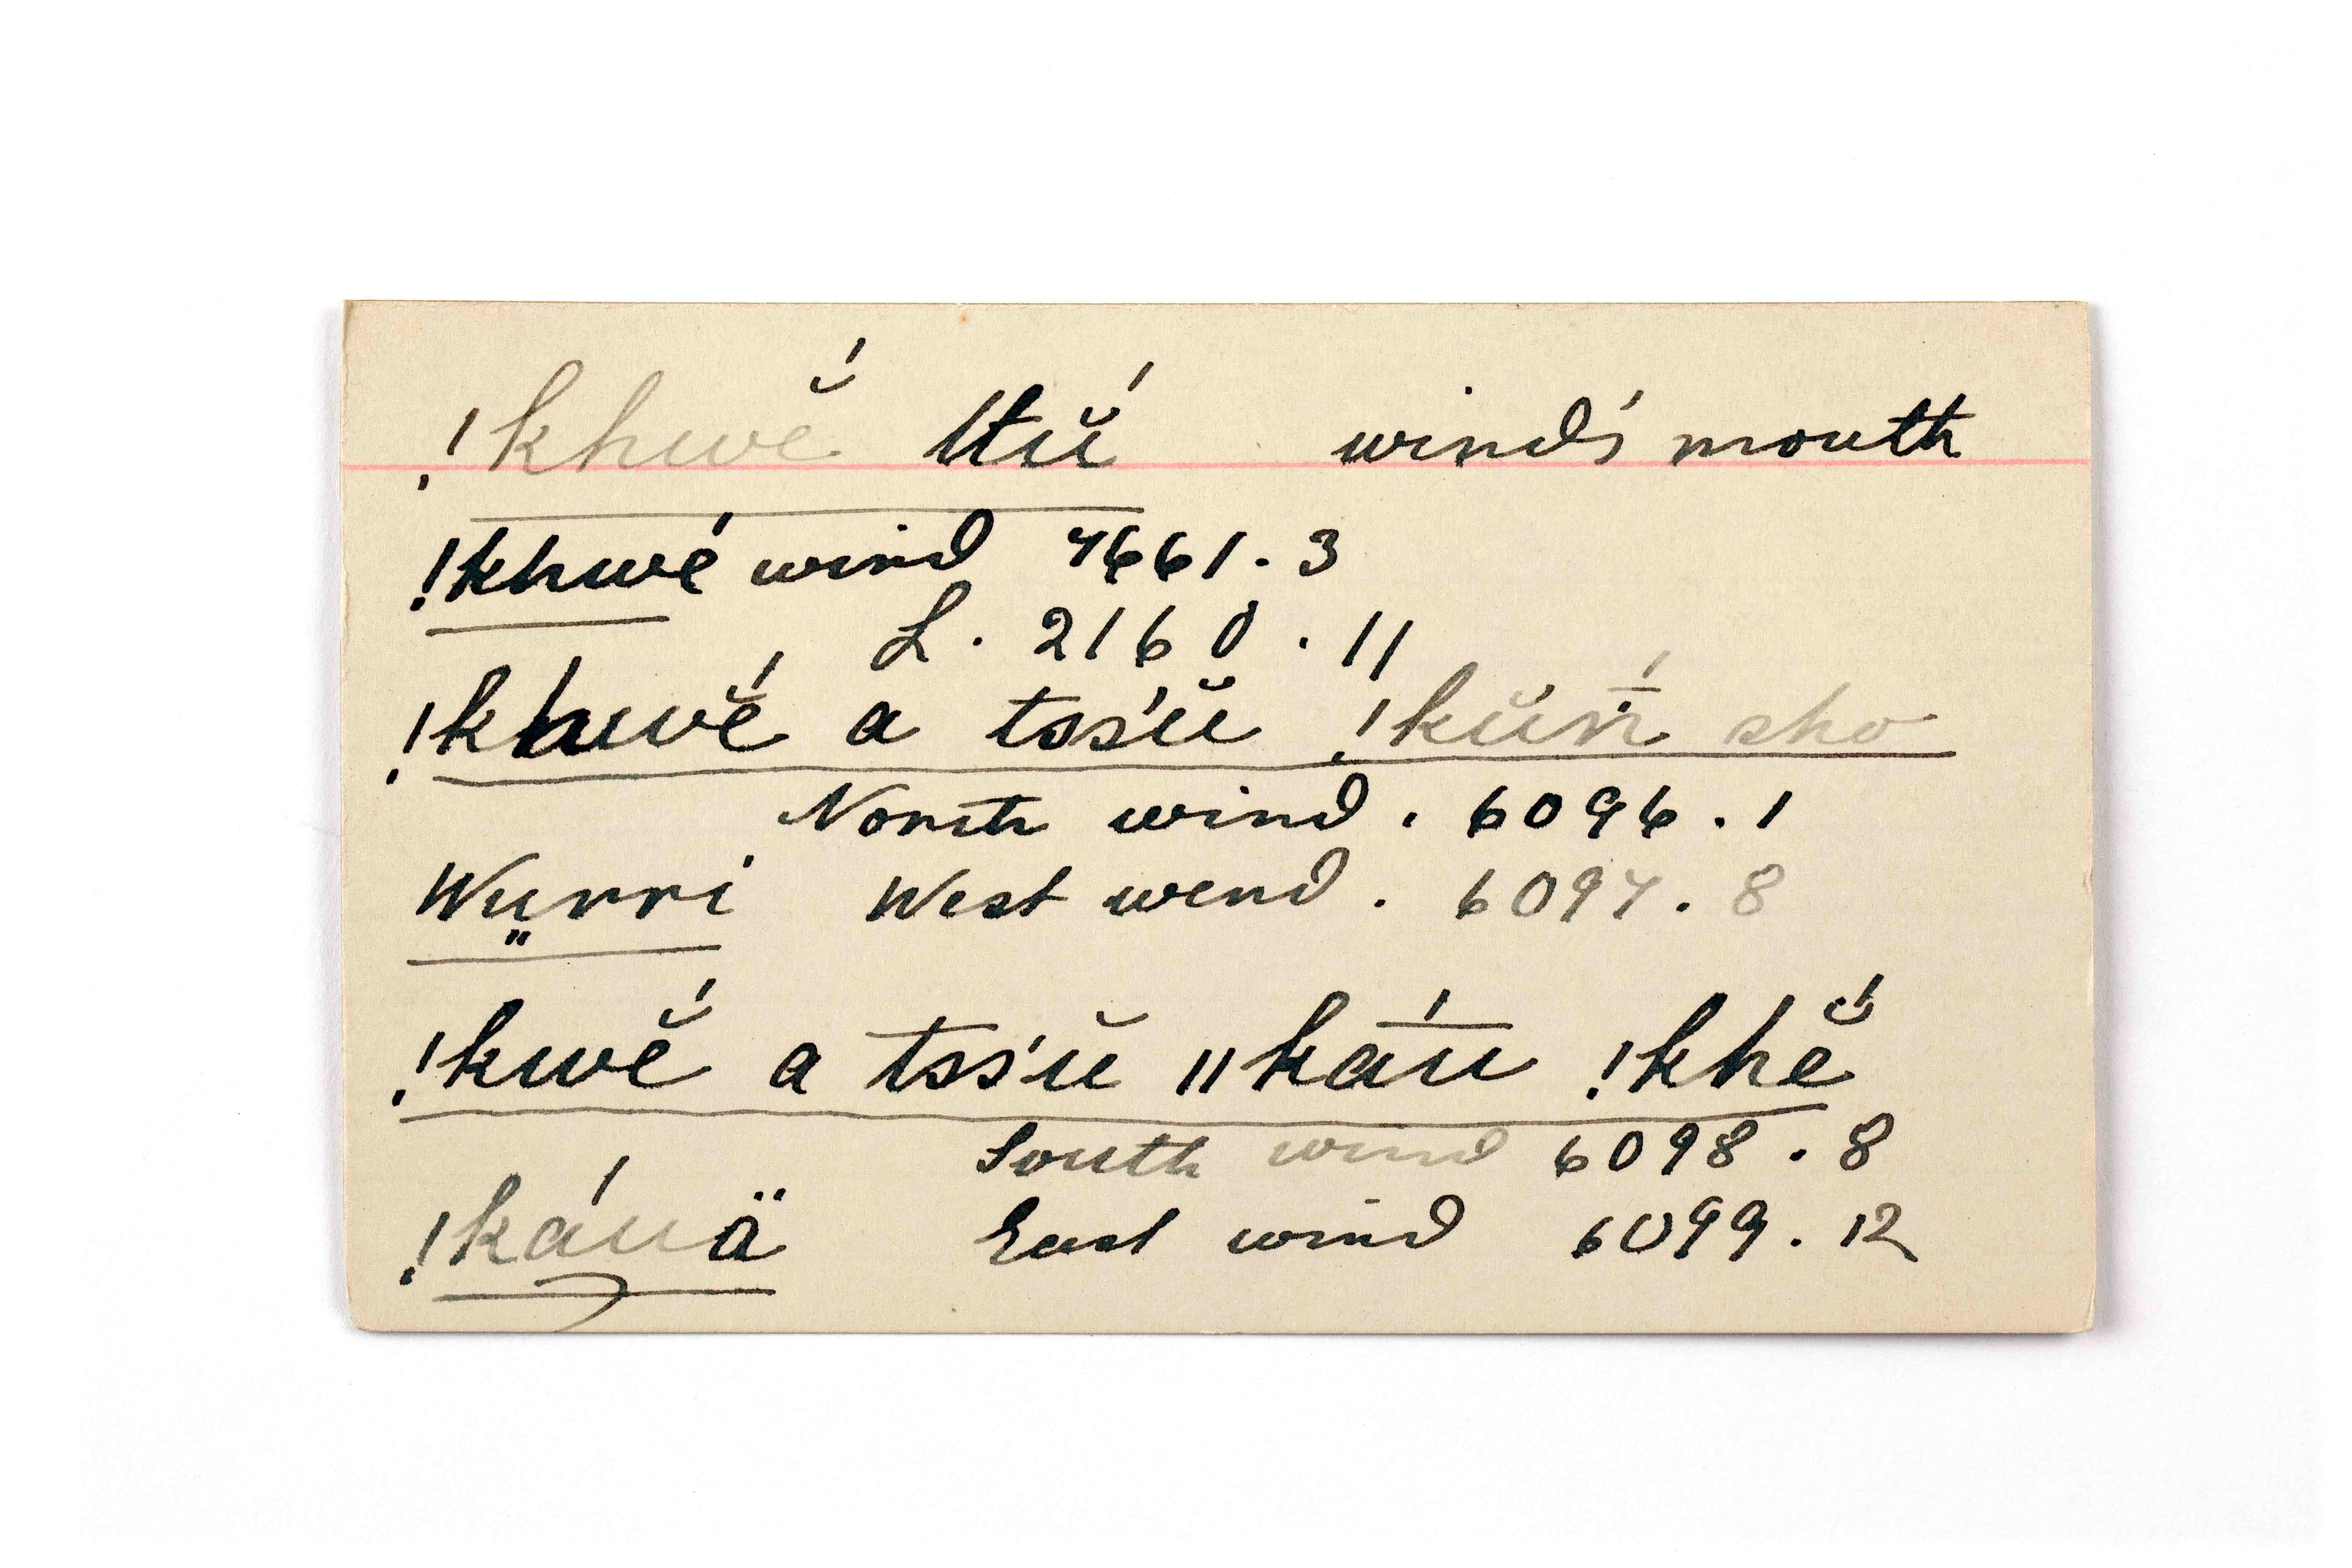 !khwĕ́ ttŭ́ wind's mouth
!khwé wind 7661.3
L. 2160.11
!khwĕ́ a tss'ŭ !kŭṅ̄́ sho
North wind. 6096.1
Wṳrri West wend. 6097.8
!kwĕ́ a tss'ŭ ǁkā́ū !khĕ́
South wind 6098.8
!káuä East wind 6099.12